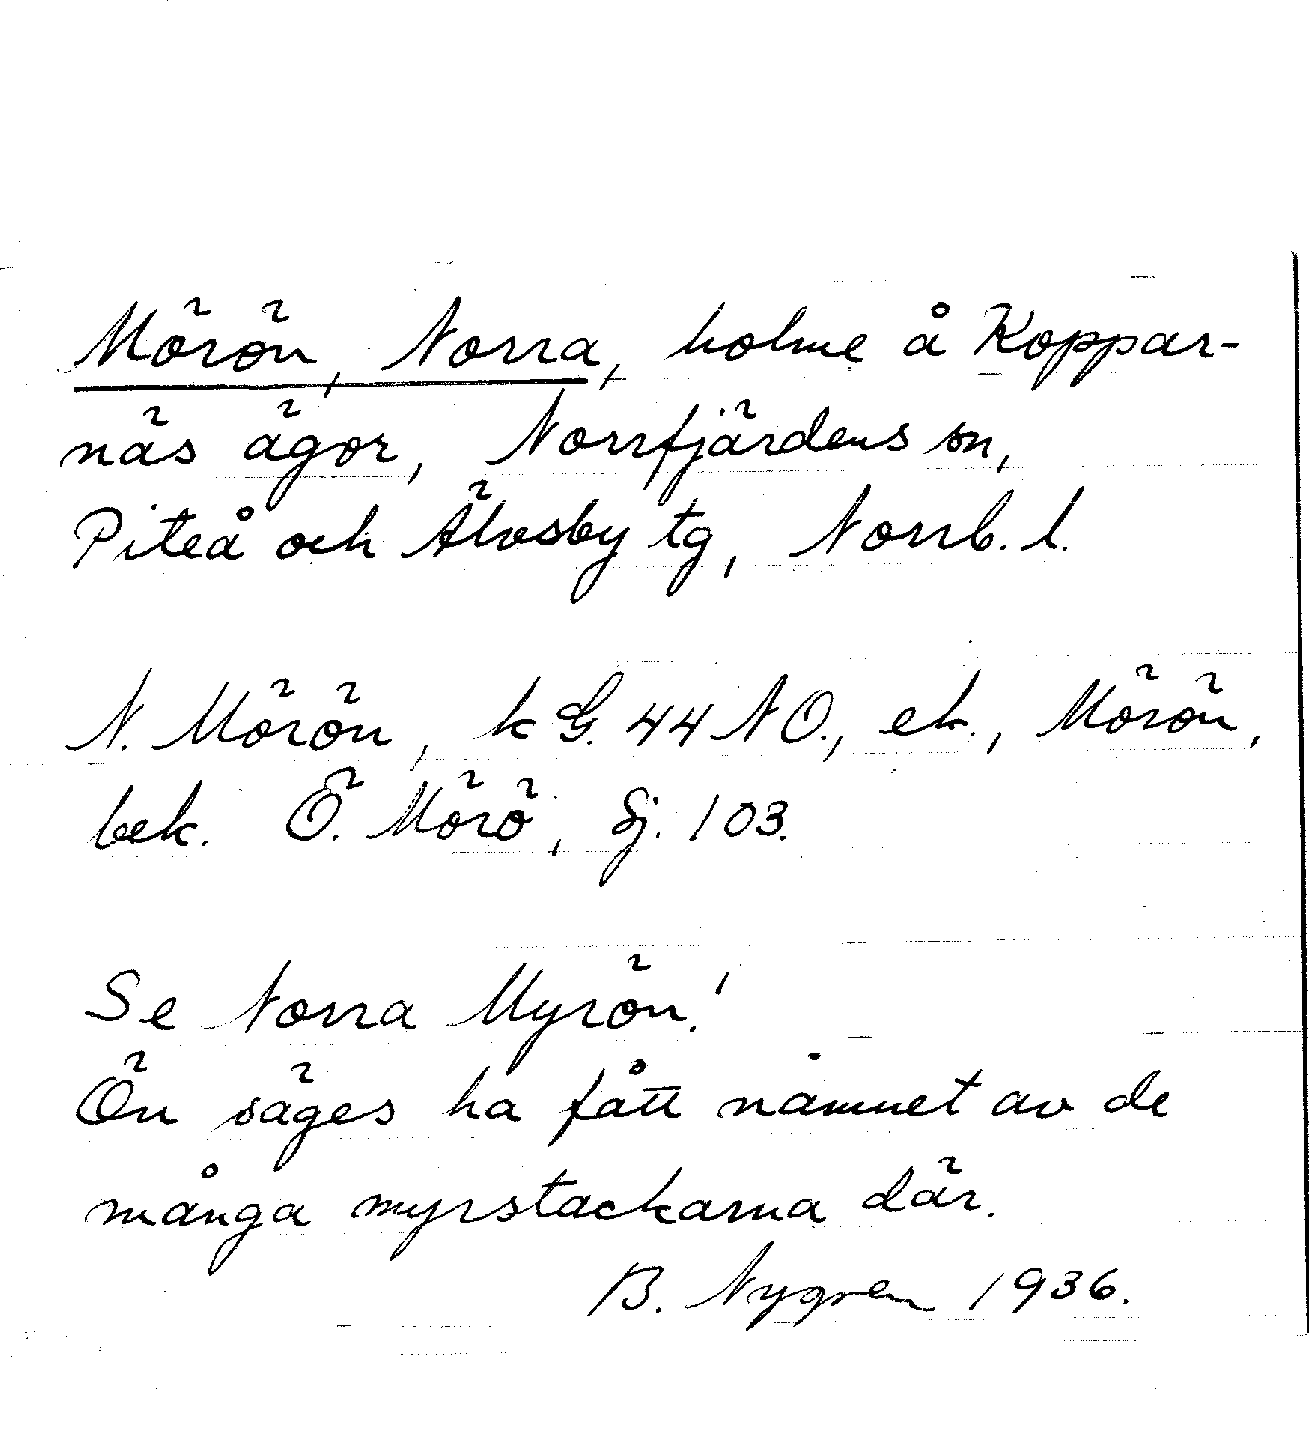 Mörön, Norra, holme å Koppar-
näs ägor, Norrfjärdens sn,
Piteå och Älvsby tg, Norrb. l.
N. Mörön, k G. 44 NO., ek., Mörön,
bek. Ö. Mörö, Sj. 103.
Se Norra Myrön!
Ön säges ha fått namnet av de
många myrstackarna där.
B. Nygren 1936.